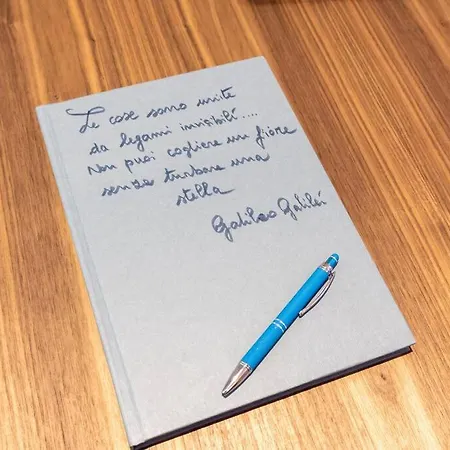 Le cose sono unite
da legami invisibili....
Non puoi cogliere un fiore
senza turbare una
stella
Galileo Galilei